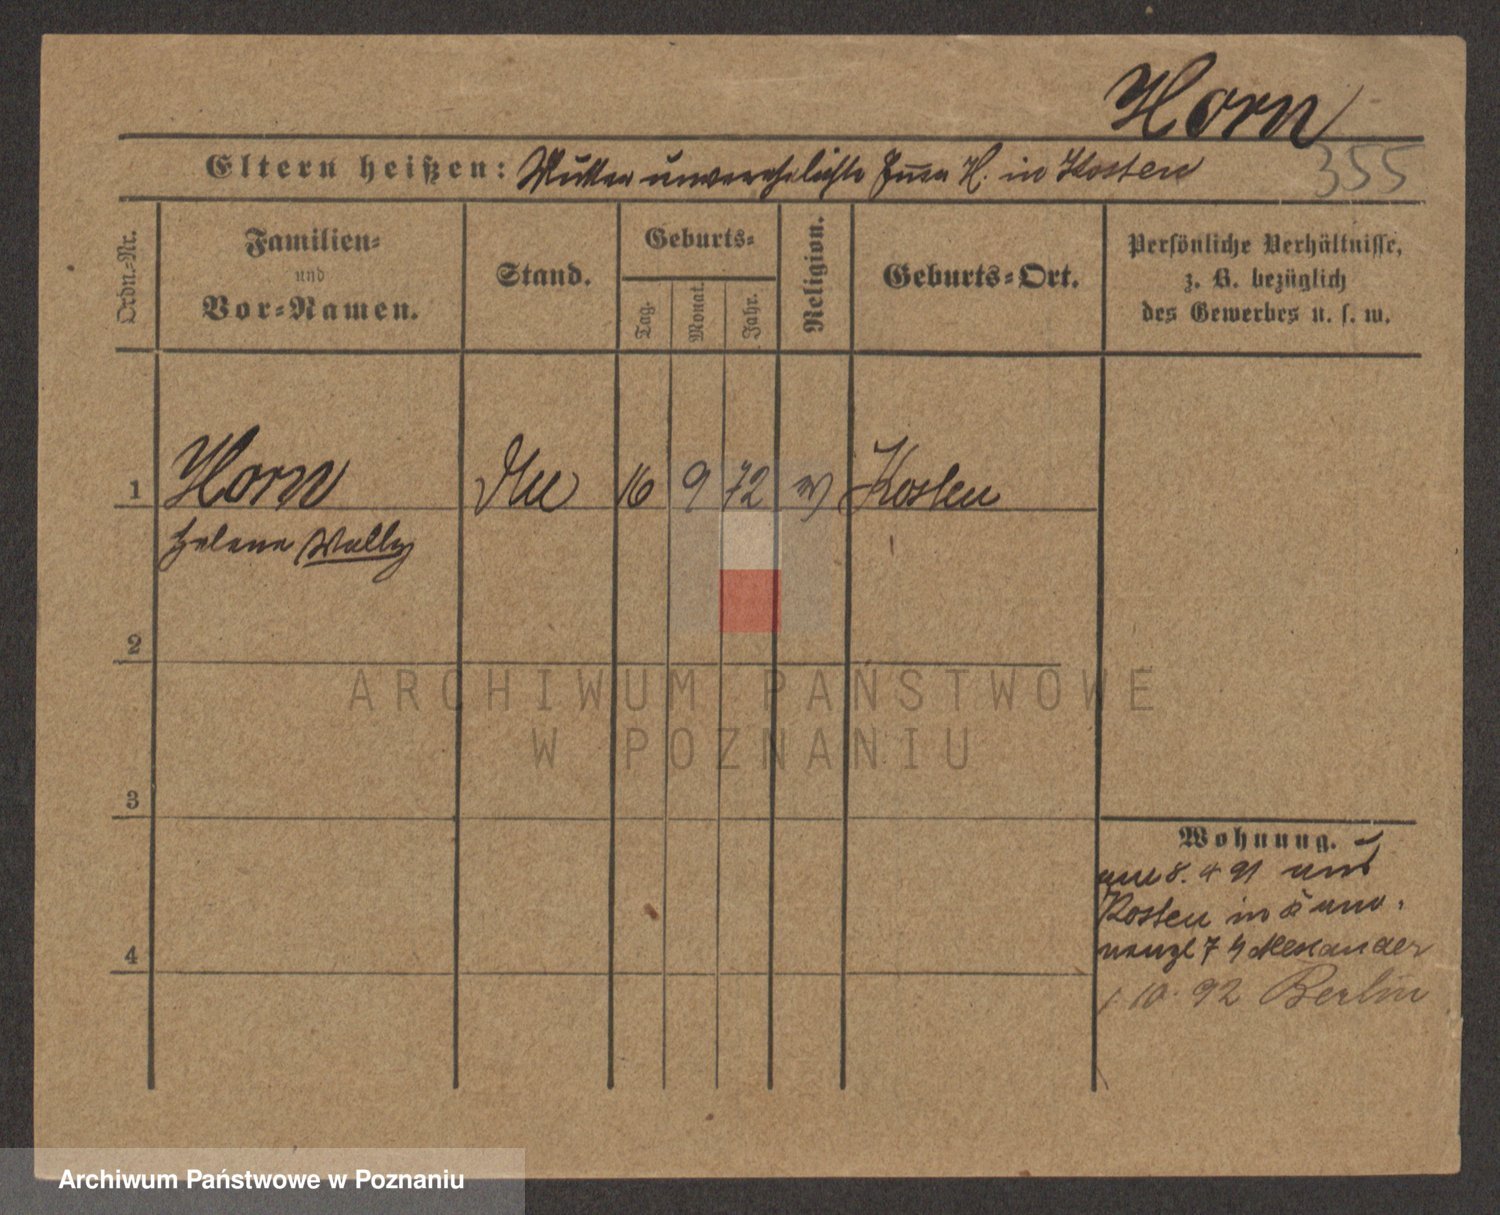 Horn
355
Eltern heißen: Mutter unverehelichte H. in Kosten
Ordn.-Nr.
Familien-
und
Vor-Namen.
Stand.
Geburts-
Tag.
Monat.
Jahr.
Religion.
Geburts-Ort.
Persönliche Verhältnisse,
z. B. bezüglich
des Gewerbes u. s. w.
1 Horn 16 9 72 Kosten
Helene Wally
2
3
4
Wohnung.
8. 4 91 aus
Kosten in
7 Alexander
1 10. 92 Berlin
ARCHIWUM PAŃSTWOWE
W POZNANIU
Archiwum Państwowe w Poznaniu